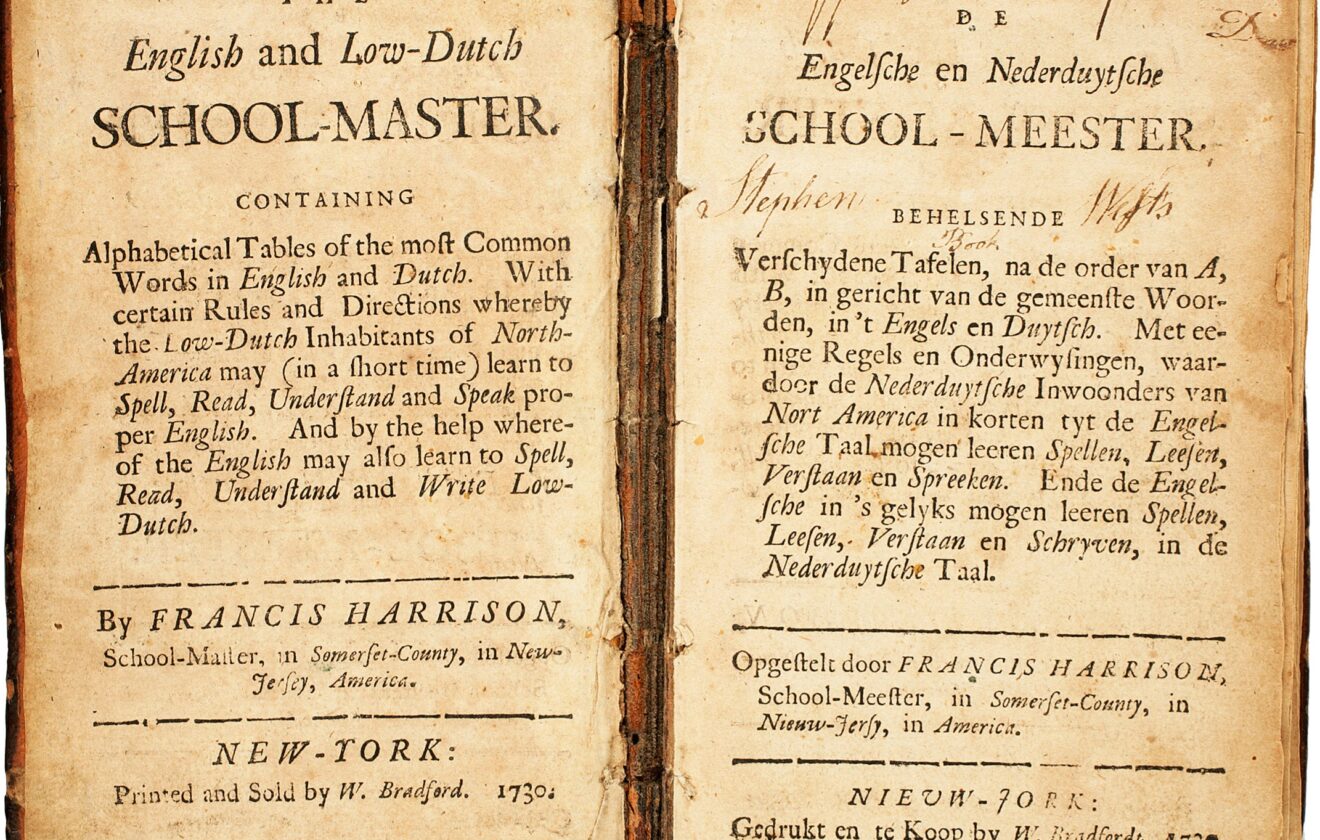 English and Low-Dutch
SCHOOL-MASTER.
CONTAINING
Alphabetical Tables of the moſt Common
Words in English and Dutch. With
certain Rules and Directions whereby
the Low-Dutch Inhabitants of North-
America may (in a ſhort time) learn to
Spell, Read, Underſtand and Speak pro-
per English. And by the help where-
of the English may alſo learn to Spell,
Read, Underſtand and Write Low-
Dutch.
By FRANCIS HARRISON,
School-Maſter, in Somerſet-County, in New-
Jerſey, America.
NEW-YORK:
Printed and Sold by W. Bradford. 1730.
DE
Engelſche en Nederduytſche
SCHOOL-MEESTER.
Stephen Weſts
BEHELSENDE
Book
Verſchydene Tafelen, na de order van A,
B, in gericht van de gemeenſte Woor-
den, in 't Engels en Duytſch. Met ee-
nige Regels en Onderwyſingen, waar-
door de Nederduytſche Inwoonders van
Nort America in korten tyt de Engel-
ſche Taal mogen leeren Spellen, Leeſen,
Verſtaan en Spreeken. Ende de Engel-
ſche in 's gelyks mogen leeren Spellen,
Leeſen, Verſtaan en Schryven, in de
Nederduytſche Taal.
Opgeſtelt door FRANCIS HARRISON,
School-Meeſter, in Somerſet-County, in
Nieuw-Jerſy, in America.
NIEUW-JORK:
Gedrukt en te Koop by W. Bradfordt. 1730